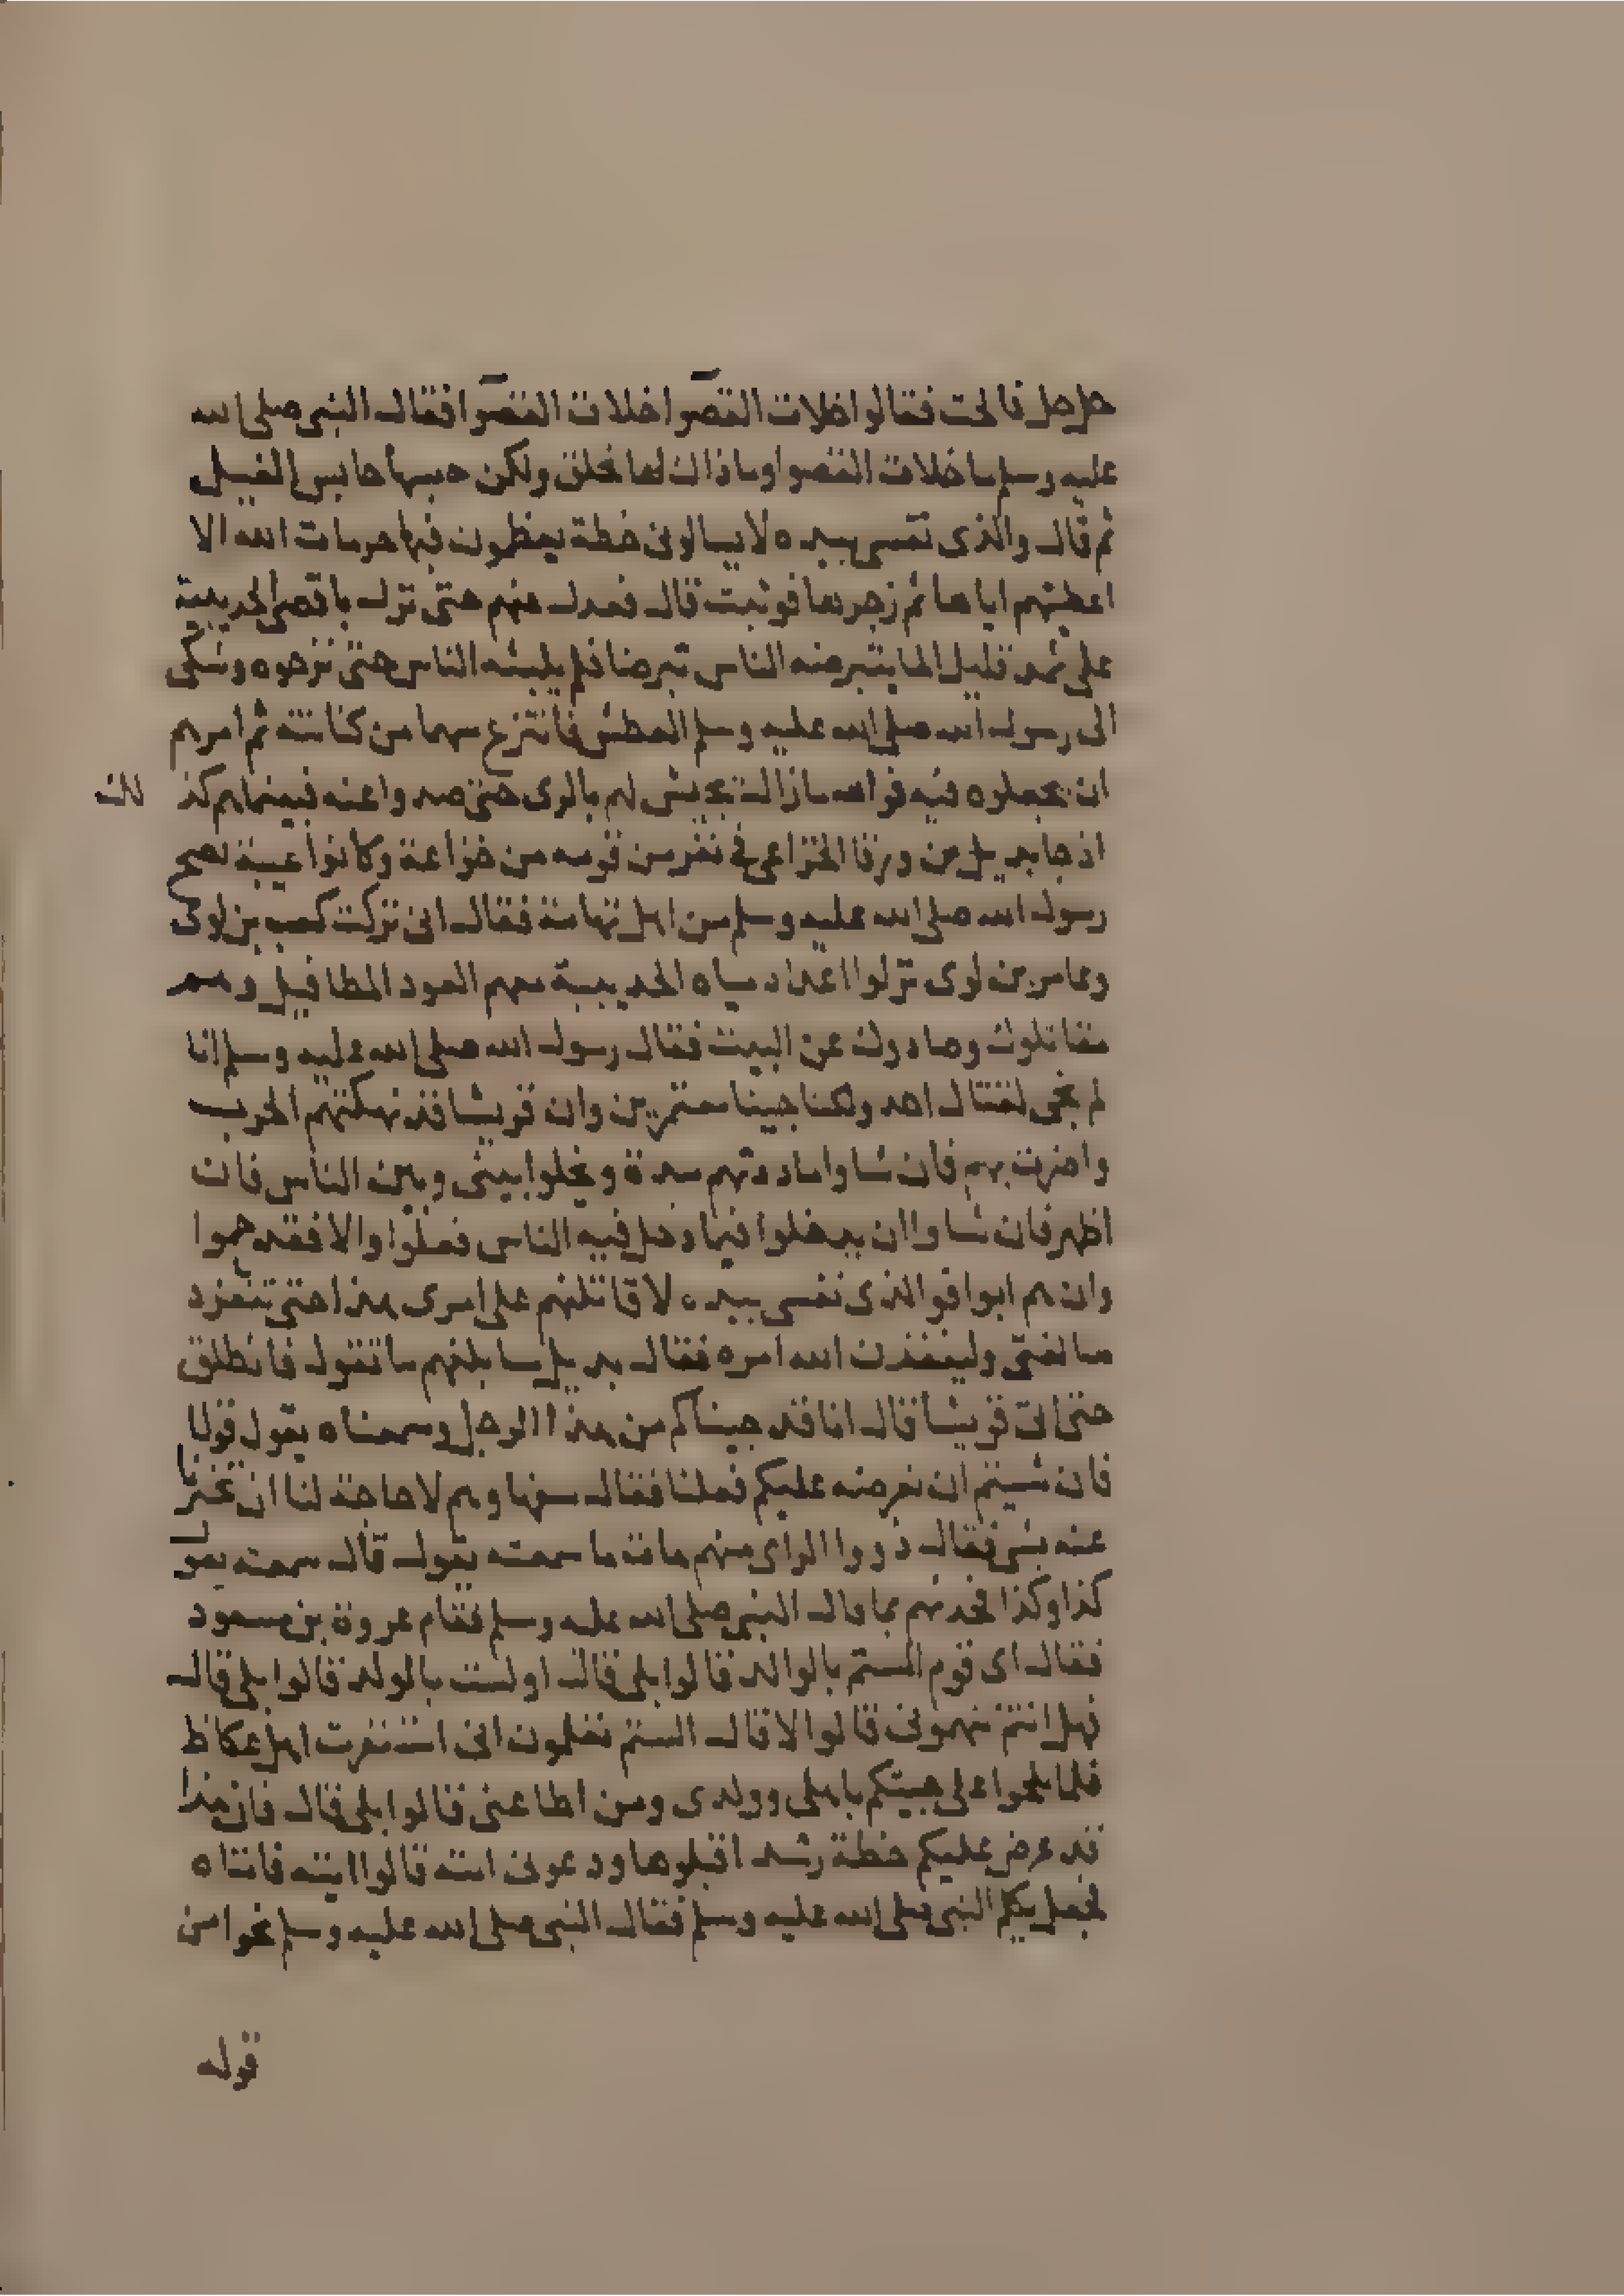 حل حل فالحت فقالوا خلات القصوا خلات القصوا فقال النبي صلى الله
عليه وسلم ما خلات القصوا وما ذاك لها بخلق ولكن حبسها حابس الفيل
ثم قال والذي نفسي بيده لا يسالوني خطة يعظمون فيها حرمات الله الا
اعطيتهم اياها ثم زجرها فوثبت قال فعدل عنهم حتى نزل باقصى الحديبية
على ثمد قليل الما يتبرضه الناس تبرضا فلم يلبثه الناس حتى نزحوه وشكى
الى رسول الله صلى الله عليه وسلم العطش فانتزع سهما من كنانته ثم امرهم
ان يجعلوه فيه فوالله ما زال يجيش لهم بالرى حتى صدروا عنه فبينما هم كذ لك
اذ جا بديل بن ورقا الخزاعي في نفر من قومه من خزاعة وكانوا عيبة نصح
رسول الله صلى الله عليه وسلم من اهل تهامة فقال اني تركت كعب بن لوى
وعامر بن لوى نزلوا اعداد مياه الحديبية معهم العوذ المطافيل وهم
مقاتلوك وصادوك عن البيت فقال رسول الله صلى الله عليه وسلم انا
لم نجى لقتال احد ولكنا جينا معتمرين وان قريشا قد نهكتهم الحرب
واضرت بهم فان شاوا ماددتهم مدة ويخلوا بيني وبين الناس فان
اظهر فان شاوا ان يدخلوا فيما دخل فيه الناس فعلوا والا فقد جموا
وان هم ابوا فوالذي نفسي بيده لاقاتلنهم على امرى هذا حتى تنفرد
سالفتي ولينفذن الله امره فقال بديل سابلغهم ما تقول فانطلق
حتى اتى قريشا قال انا قد جيناكم من هذا الرجل وسمعناه يقول قولا
فان شيتم ان نعرضه عليكم فعلنا فقال سفهاوهم لا حاجة لنا ان تخبرنا
عنه بشي فقال ذووا الراى منهم هات ما سمعته يقول قال سمعته يقول
كذا وكذا فحدثهم بما قال النبي صلى الله عليه وسلم فقام عروة بن مسعود
فقال اى قوم الستم بالوالد قالوا بلى قال اولست بالولد قالوا بلى قال
فهل انتم تتهموني قالوا لا قال الستم تعلمون اني استنفرت اهل عكاظ
فلما بلحوا على جيتكم باهلى وولدى ومن اطاعني قالوا بلى قال فان هذا
قد عرض عليكم خطة رشد اقبلوها ودعوني اتته قالوا ايته فاتاه
فجعل يكلم النبي صلى الله عليه وسلم فقال النبي صلى الله عليه وسلم نحوا من
قوله